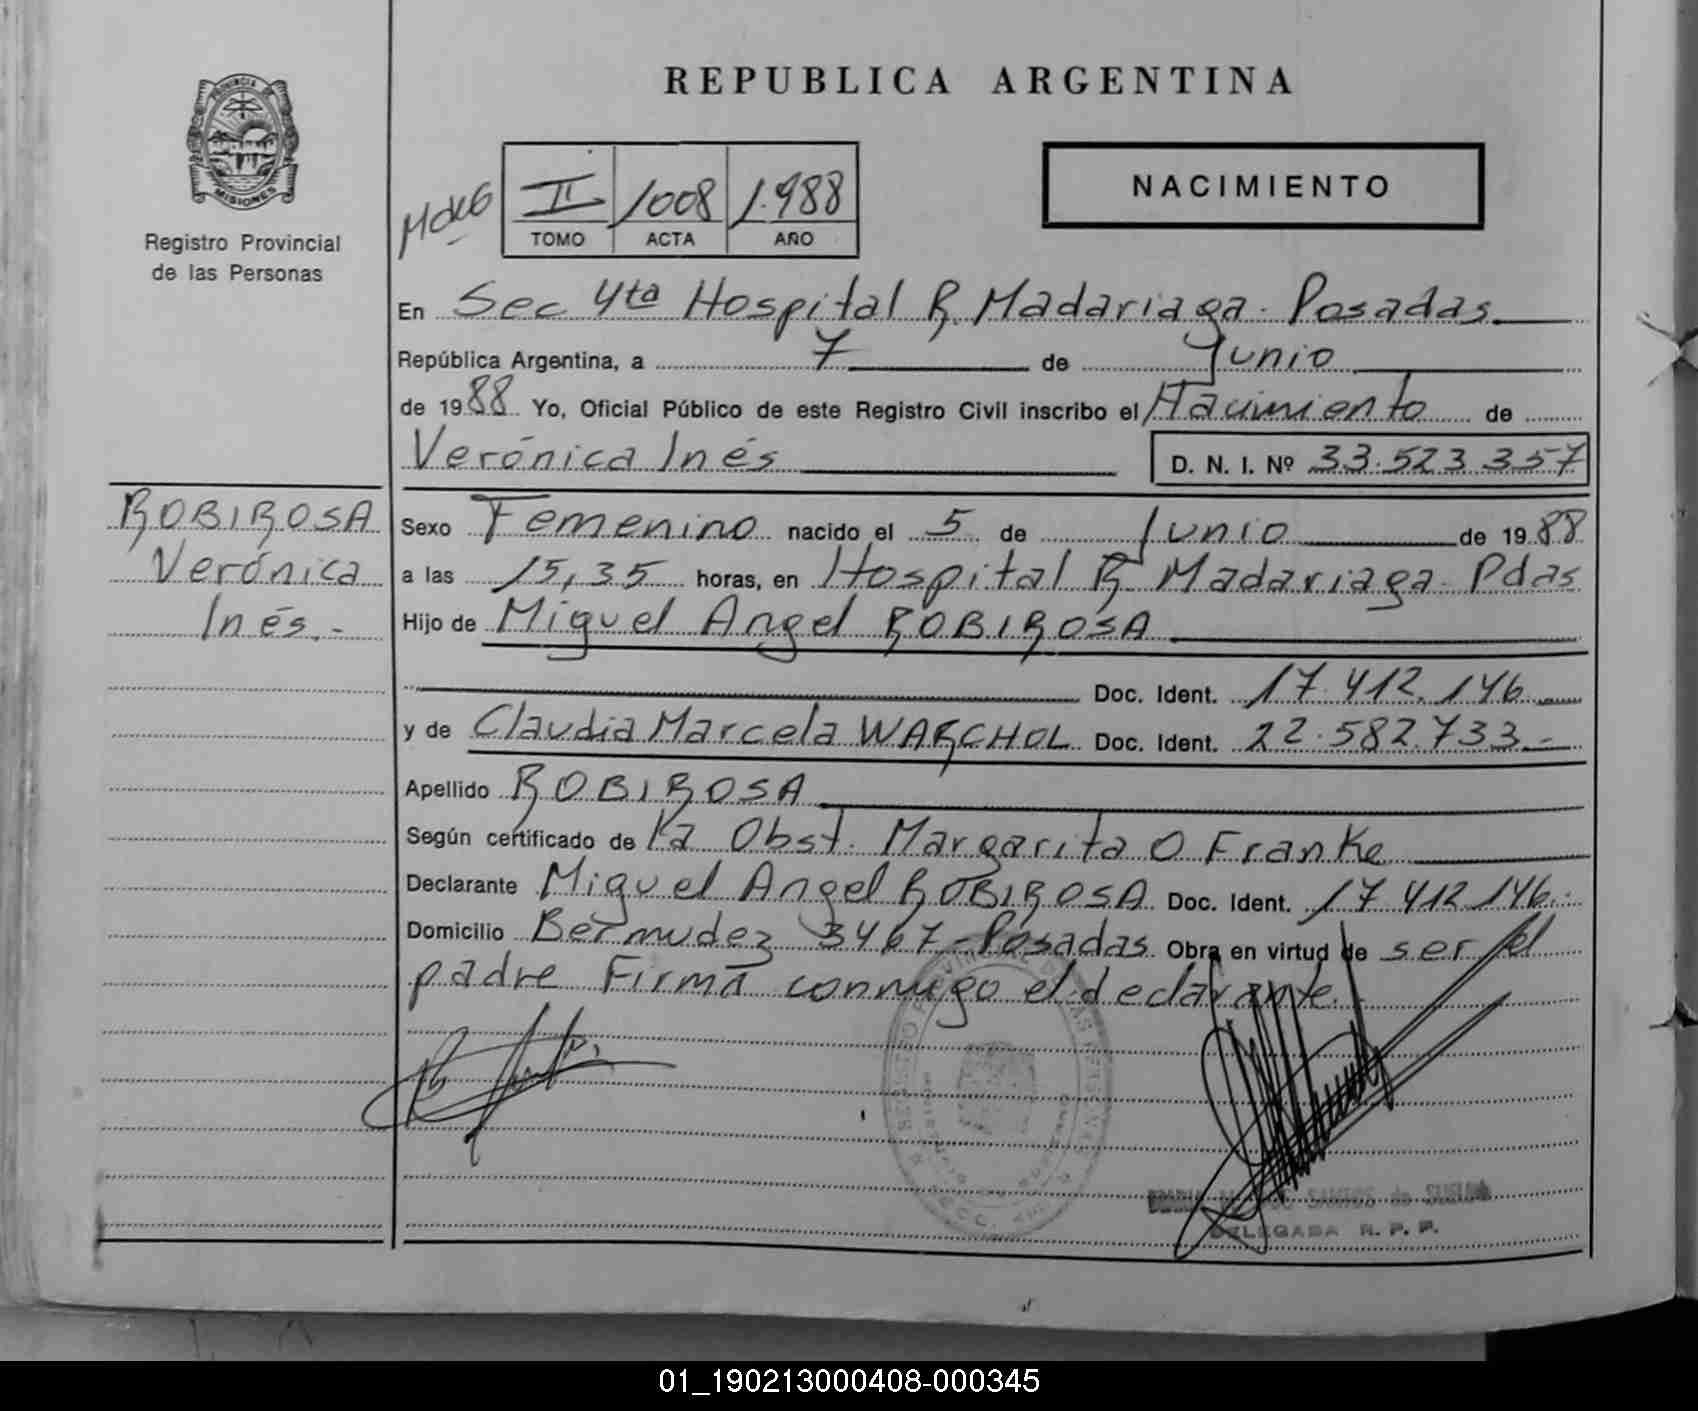 REPUBLICA ARGENTINA
PROVINCIA DE
MISIONES
Registro Provincial
de las Personas
II 1008 1.988
TOMO ACTA AÑO
NACIMIENTO
En Sec 4ta Hospital R. Madariaga - Posadas
República Argentina, a 7 de Junio
de 1988 Yo, Oficial Público de este Registro Civil inscribo el Nacimiento de
Verónica Inés D. N. I. Nº 33.523.357
ROBIROSA
Verónica
Inés.-
Sexo Femenino nacido el 5 de Junio de 1988
a las 15,35 horas, en Hospital R Madariaga - Pdas
Hijo de Miguel Angel ROBIROSA
Doc. Ident. 17.412.146
y de Claudia Marcela WARCHOL Doc. Ident. 22.582.733.-
Apellido ROBIROSA
Según certificado de la Obst. Margarita O Franke
Declarante Miguel Angel ROBIROSA Doc. Ident. 17.412.146.-
Domicilio Bermudez 3467 - Posadas Obra en virtud de ser el
padre Firma conmigo el declarante.
DELEGADA R. P. P.
01_190213000408-000345